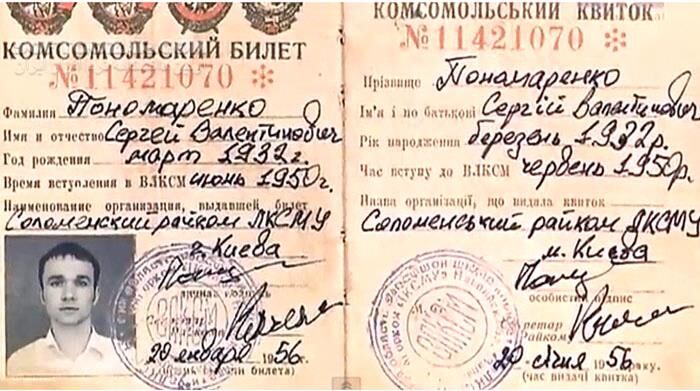 КОМСОМОЛЬСКИЙ БИЛЕТ
№ 11421070 ✻
Фамилия Пономаренко
Имя и отчество Сергей Валентинович
Год рождения март 1932 г.
Время вступления в ВЛКСМ июнь 1950 г.
Наименование организации, выдавшей билет
Соломенский райком ЛКСМУ
г. Киева
личная подпись
20 января 1956 г.
билета)
КОМСОМОЛЬСЬКИЙ КВИТОК
№ 11421070 ✻
Прізвище Пономаренко
Ім'я і по батькові Сергій Валентинович
Рік народження березень 1932 р.
Час вступу до ВЛКСМ червень 1950 р.
Назва організації, що видала квиток
Соломенський райком ЛКСМУ
м. Києва
особистий підпис
20 січня 1956 року
(час видачі квитка)